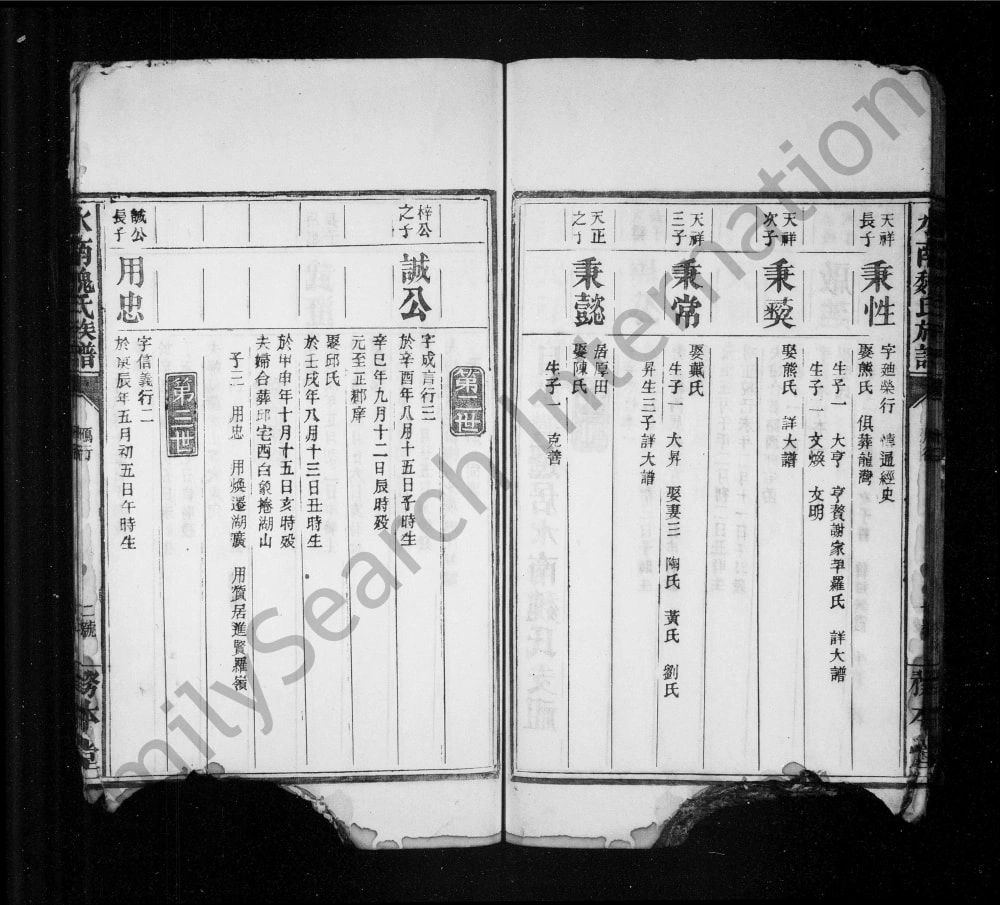 水南魏氏族譜
天祥
長子
秉性
字廸榮行 博通經史
娶熊氏 俱葬龍灣
生子一 大亨 亨贅謝家聿羅氏 詳大譜
生子二 文煥 文明
天祥
次子
秉
娶熊氏 詳大譜
天祥
三子
秉常
娶戴氏
生子一 大昇 娶妻三 陶氏 黃氏 劉氏
昇生三子詳大譜
天正
之子
秉懿
居厚田
娶陳氏
生子一 克善
第二世
梓公
之子
誠公
字成言行三
於辛酉年八月十五日子時生
辛巳年九月十二日辰時歿
元至正鄉庠
娶邱氏
於壬戌年八月十三日丑時生
於甲申年十月十五日亥時歿
夫婦合葬邱宅西白象捲湖山
子三 用忠 用煥遷湖廣 用質居進賢羅嶺
第三世
誠公
長子
用忠
字信義行二
於庚辰年五月初五日午時生
水南魏氏族譜
鴈行
二號
務本堂
FamilySearch International